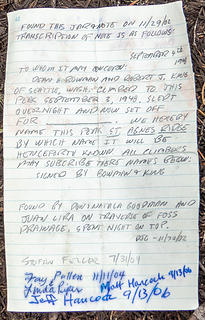 FOUND THE JAR & NOTE ON 11/29/02
TRANSCRIPTION OF NOTE IS AS FOLLOWS:
SEPTEMBER 4th
1948
TO WHOM IT MAY CONCERN:
DEAN BOWMAN AND ROBERT J. KING
OF SEATTLE, WASH. CLIMBED TO THIS
PEAK SEPTEMBER 3, 1948, SLEPT
OVERNIGHT AND NOW SET OFF
FOR WE HEREBY
NAME THIS PEAK ST AGNES RIDGE
BY WHICH NAME IT WILL BE
HENCEFORTH KNOWN. ALL CLIMBERS
MAY SUBCRIBE THERE NAMES BELOW.
SIGNED BY BOWMAN & KING
FOUND BY GOODMAN AND
JUAN LIRA ON TRAVERSE OF FOSS
DRAINAGE, SPENT NIGHT ON TOP.
11/29/02
STEFAN 7/31/04
Fay Pullen 11/11/04
Linda Matt Hancock 9/13/06
Jeff Hancock 9/13/06